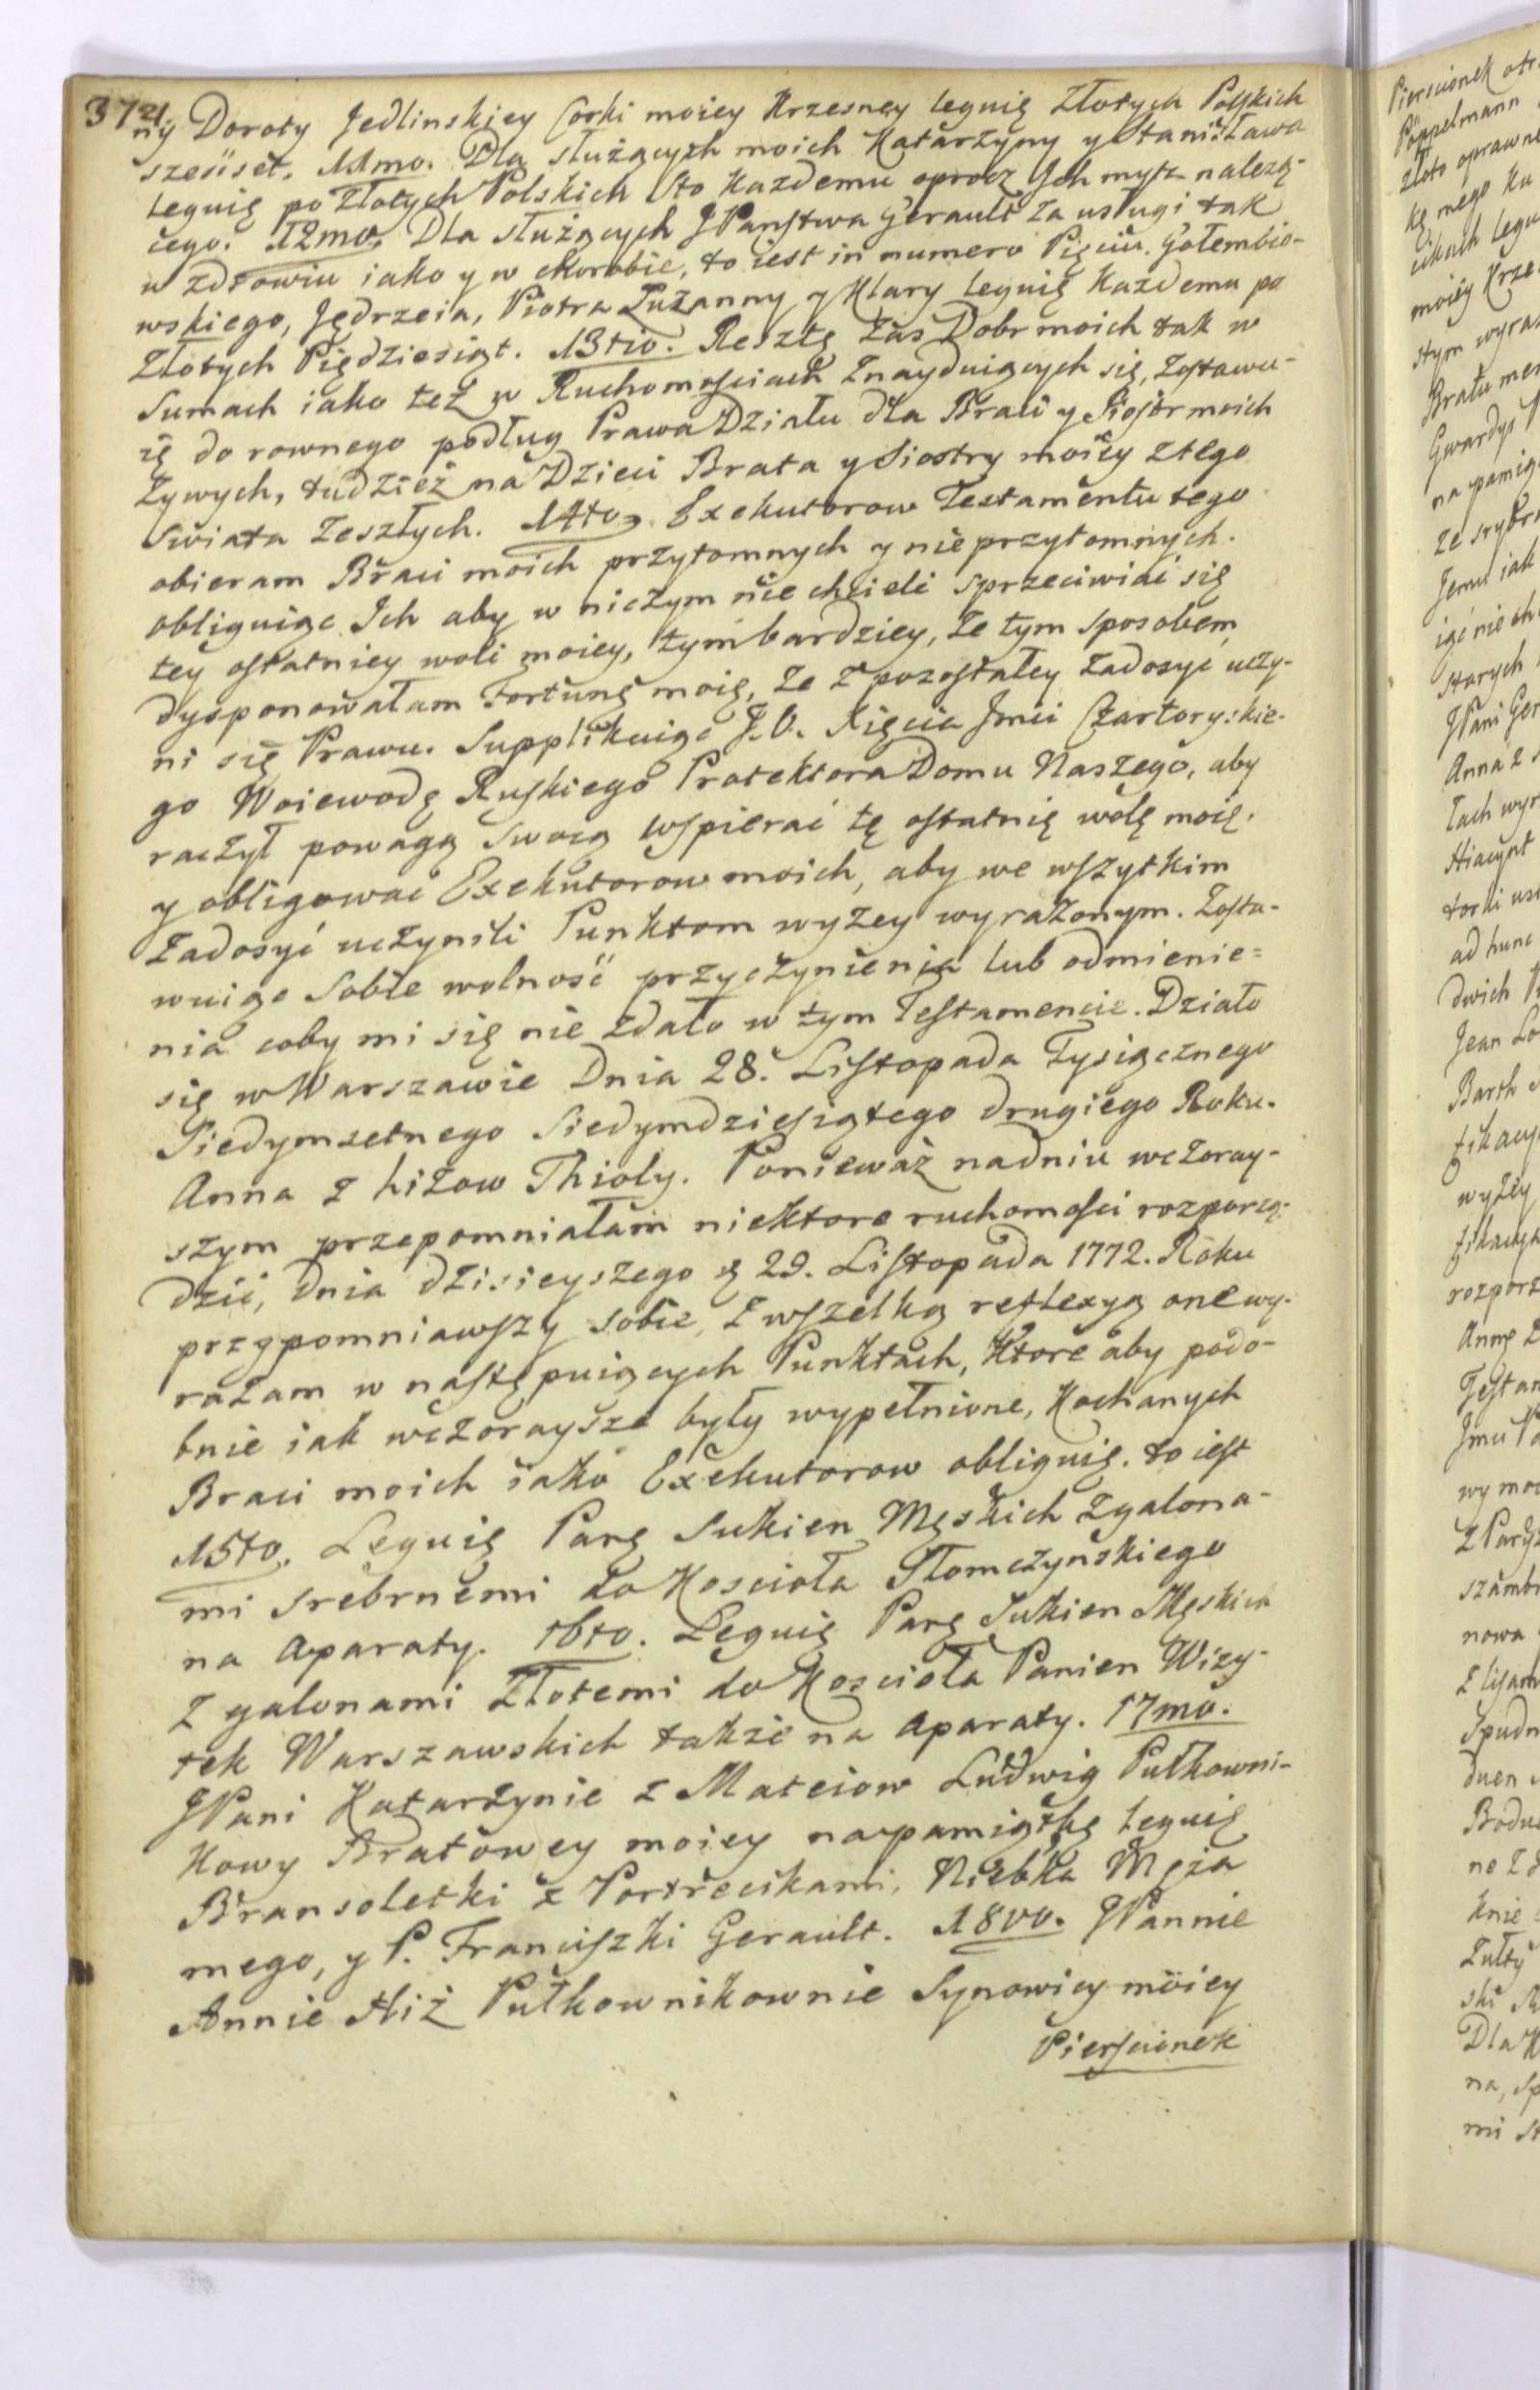 372
ny Doroty Jedlinskiey Corki moiey Krzesney leguię Złotych Polskich
sześiset. 11mo. Dla służących moich Katarzyny y Stanisława
leguię po Złotych Polskich Sto Kazdemu oprocz Ich myta należą-
cego. 12mo. Dla służących JPaństwa Gerault za usługi tak
w zdrowiu iako y w chorobie, to iest in numero Pięciu. Gołembio-
wskiego, Jędrzeia, Piotra Zuzanny y Klary leguię Kazdemu po
Złotych Piędziesiąt. 13tio. Resztę zas Dobr moich tak w
Sumach iako też w Ruchomościach Znayduiących się, Zostawu-
ię do rownego podług Prawa Działu dla Braci y Siostr moich
Żywych, tudzież na Dzieci Brata y Siostry moiey z tego
Swiata Zeszłych. 14to. Exekutorow Testamentu tego
obieram Braci moich przytomnych y nieprzytomnych.
obliguiąc Ich aby w niczym nie chcieli Sprzeciwiać się
tey ostatniey woli moiey, tym bardziey, że tym sposobem
dysponowałam Fortunę moię, że z pozostałey Zadosyć uczy-
ni się Prawu. Supplikuiąc J.O. Xięcia Jmci Czartoryskie-
go Woiewodę Ruskiego Protektora Domu Naszego, aby
raczył powagą Swoią wspierać tę ostatnię wolę moię.
y obligować Exekutorow moich, aby we wszytkim
Zadosyć uczynili Punktom wyzey wyrażonym. Zosta-
wuiąc Sobie wolność przyczynienia lub odmienie=
nia coby mi się nie zdało w tym Testamencie. Działo
się w Warszawie Dnia 28. Listopada Tysiącznego
Siedymsetnego Siedymdziesiątego drugiego Roku.
Anna z Hiżow Thioly. Ponieważ na dniu wczoray-
szym przepomniałam niektore ruchomości rozporzą-
dzić, dnia dzisieyszego 29. Listopada 1772. Roku
przypomniawszy sobie, z wszelką reflexyą one wy-
rażam w następuiących Punktach, Ktore aby podo-
bnie iak wczoraysze były wypełnione, Kochanych
Braci moich iako Exekutorow obliguię. to iest
15to. Leguię Parę Sukien Męskich z galona-
mi srebrnemi do Kosciola Słomczyńskiego
na Aparaty. 16to. Leguię Parę Sukien Męskich
z galonami Złotemi do Kosciola Panien Wizy-
tek Warszawskich także na Aparaty. 17mo.
JPani Katarzynie z Mateiow Ludwig Pułkowni-
kowy Bratowey moiey na pamiątkę leguię
Bransoletki z Portrecikami, Niebka Męża
mego, y P. Franciszki Gerault. 18vo. JPannie
Annie Hiż Pułkownikownie Synowicy moiey
Pierscionek